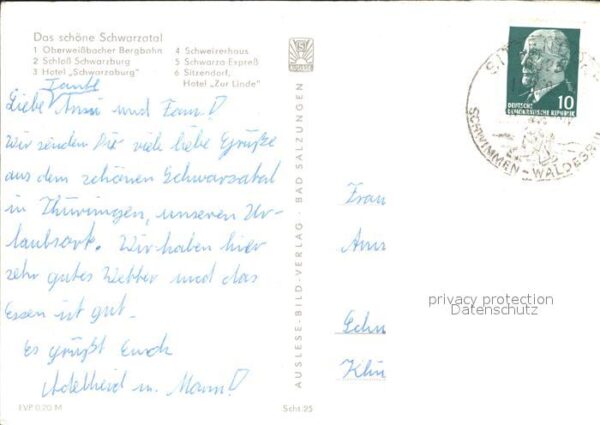 Das schöne Schwarzatal
1 Oberweißbacher Bergbahn
2 Schloß Schwarzburg
3 Hotel „Schwarzaburg"
4 Schweizerhaus
5 Schwarza Expreß
6 Sitzendorf,
Hotel „Zur Linde"
Tante
Liebe Anni und Fam.!
Wir senden Dir viele liebe Grüße
aus dem schönen Schwarzatal
in Thüringen, unseren Ur-
laubsort. Wir haben hier
sehr gutes Wetter und das
Essen ist gut.
Es grüßt Euch
Adelheid u. Mann!
EVP 0,20 M
Scht 25
AUSLESE-BILD-VERLAG · BAD SALZUNGEN
DEUTSCHE
DEMOKRATISCHE REPUBLIK
10
SCHWIMMEN-WALDESRUH
Frau
privacy protection
Datenschutz